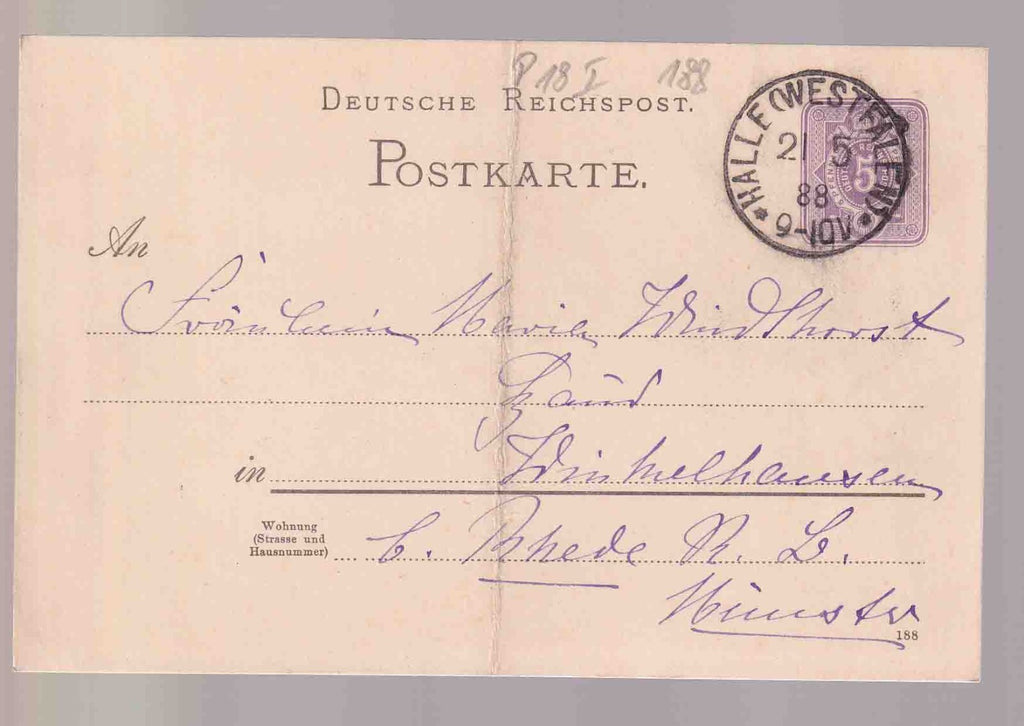 P 18 I 188
DEUTSCHE REICHSPOST.
POSTKARTE.
HALLE (WESTFALEN)
21 5
88
9-10V
5
An
Fräulein Marie Windthorst
Haus
in Winkelhausen
Wohnung
(Strasse und
Hausnummer)
b. Rhede R. B.
Münster
188